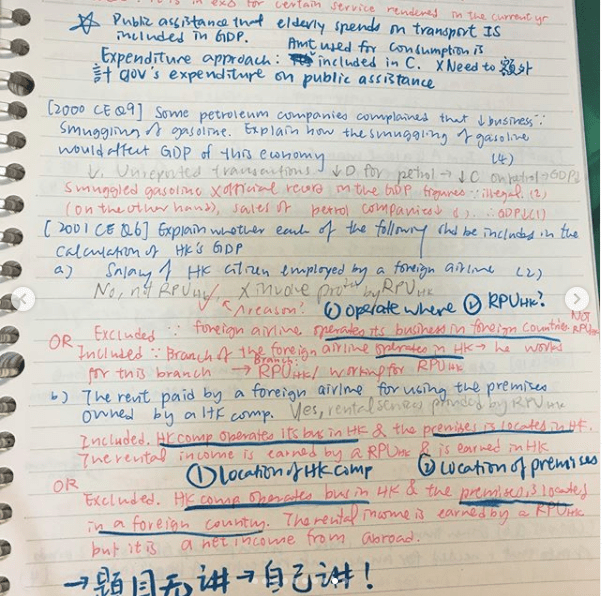 is in exp for certain service rendered in the current yr
☆ Public assistance that elderly spends on transport IS
included in GDP. Amt used for consumption is
Expenditure approach: included in C. X Need to 額外
計 gov's expenditure on public assistance
[2000 CE Q9] Some petroleum companies complained that ↓business ∵
smuggling of gasoline. Explain how the smuggling of gasoline
would affect GDP of this economy (4)
↓. Unreported transactions ↓D for petrol → ↓C on petrol → GDP↓
Smuggled gasoline X official record in the GDP figures ∵ illegal. (2)
(on the other hand), sales of petrol companies↓ ∴ GDP↓ (1)
[2001 CE Q6] Explain whether each of the following shd be included in the
calculation of HK's GDP
a) Salary of HK citizen employed by a foreign airline (2)
No, not RPU HK, X involve prodn by RPU HK
↖ A reason? ① operate where ② RPU HK?
OR Excluded ∵ foreign airline operates its business in foreign countries. NOT RPU HK
Included ∵ Branch of the foreign airline operates in HK → he works
for this branch → Branch: RPU HK / working for RPU HK
b) The rent paid by a foreign airline for using the premises
owned by a HK comp. Yes, rental services provided by RPU HK
Included. HK comp operates its bus in HK & the premises is located in HK.
The rental income is earned by a RPU HK & is earned in HK
① Location of HK comp ② Location of premises
OR
Excluded. HK comp operates bus in HK & the premises is located
in a foreign country. The rental income is earned by a RPU HK
but it is a net income from abroad.
→ 題目無讲 → 自己讲!